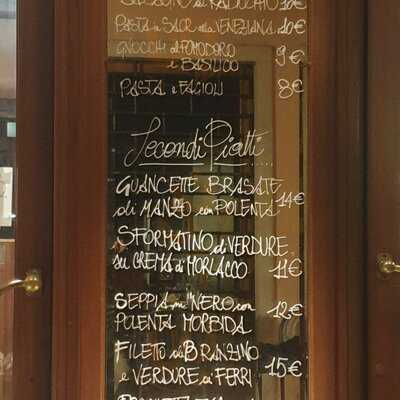 PASTA in SAOR alla VENEZIANA 10€
GNOCCHI al POMODORO
e BASILICO 9€
PASTA e FAGIOLI 8€
Secondi Piatti.....
GUANCETTE BRASATE
di MANZO con POLENTA 14€
SFORMATINO di VERDURE
su CREMA di MORLACCO 11€
SEPPIA in "NERO con 12€
POLENTA MORBIDA
FILETTO di BRANZINO
e VERDURE ai FERRI 15€